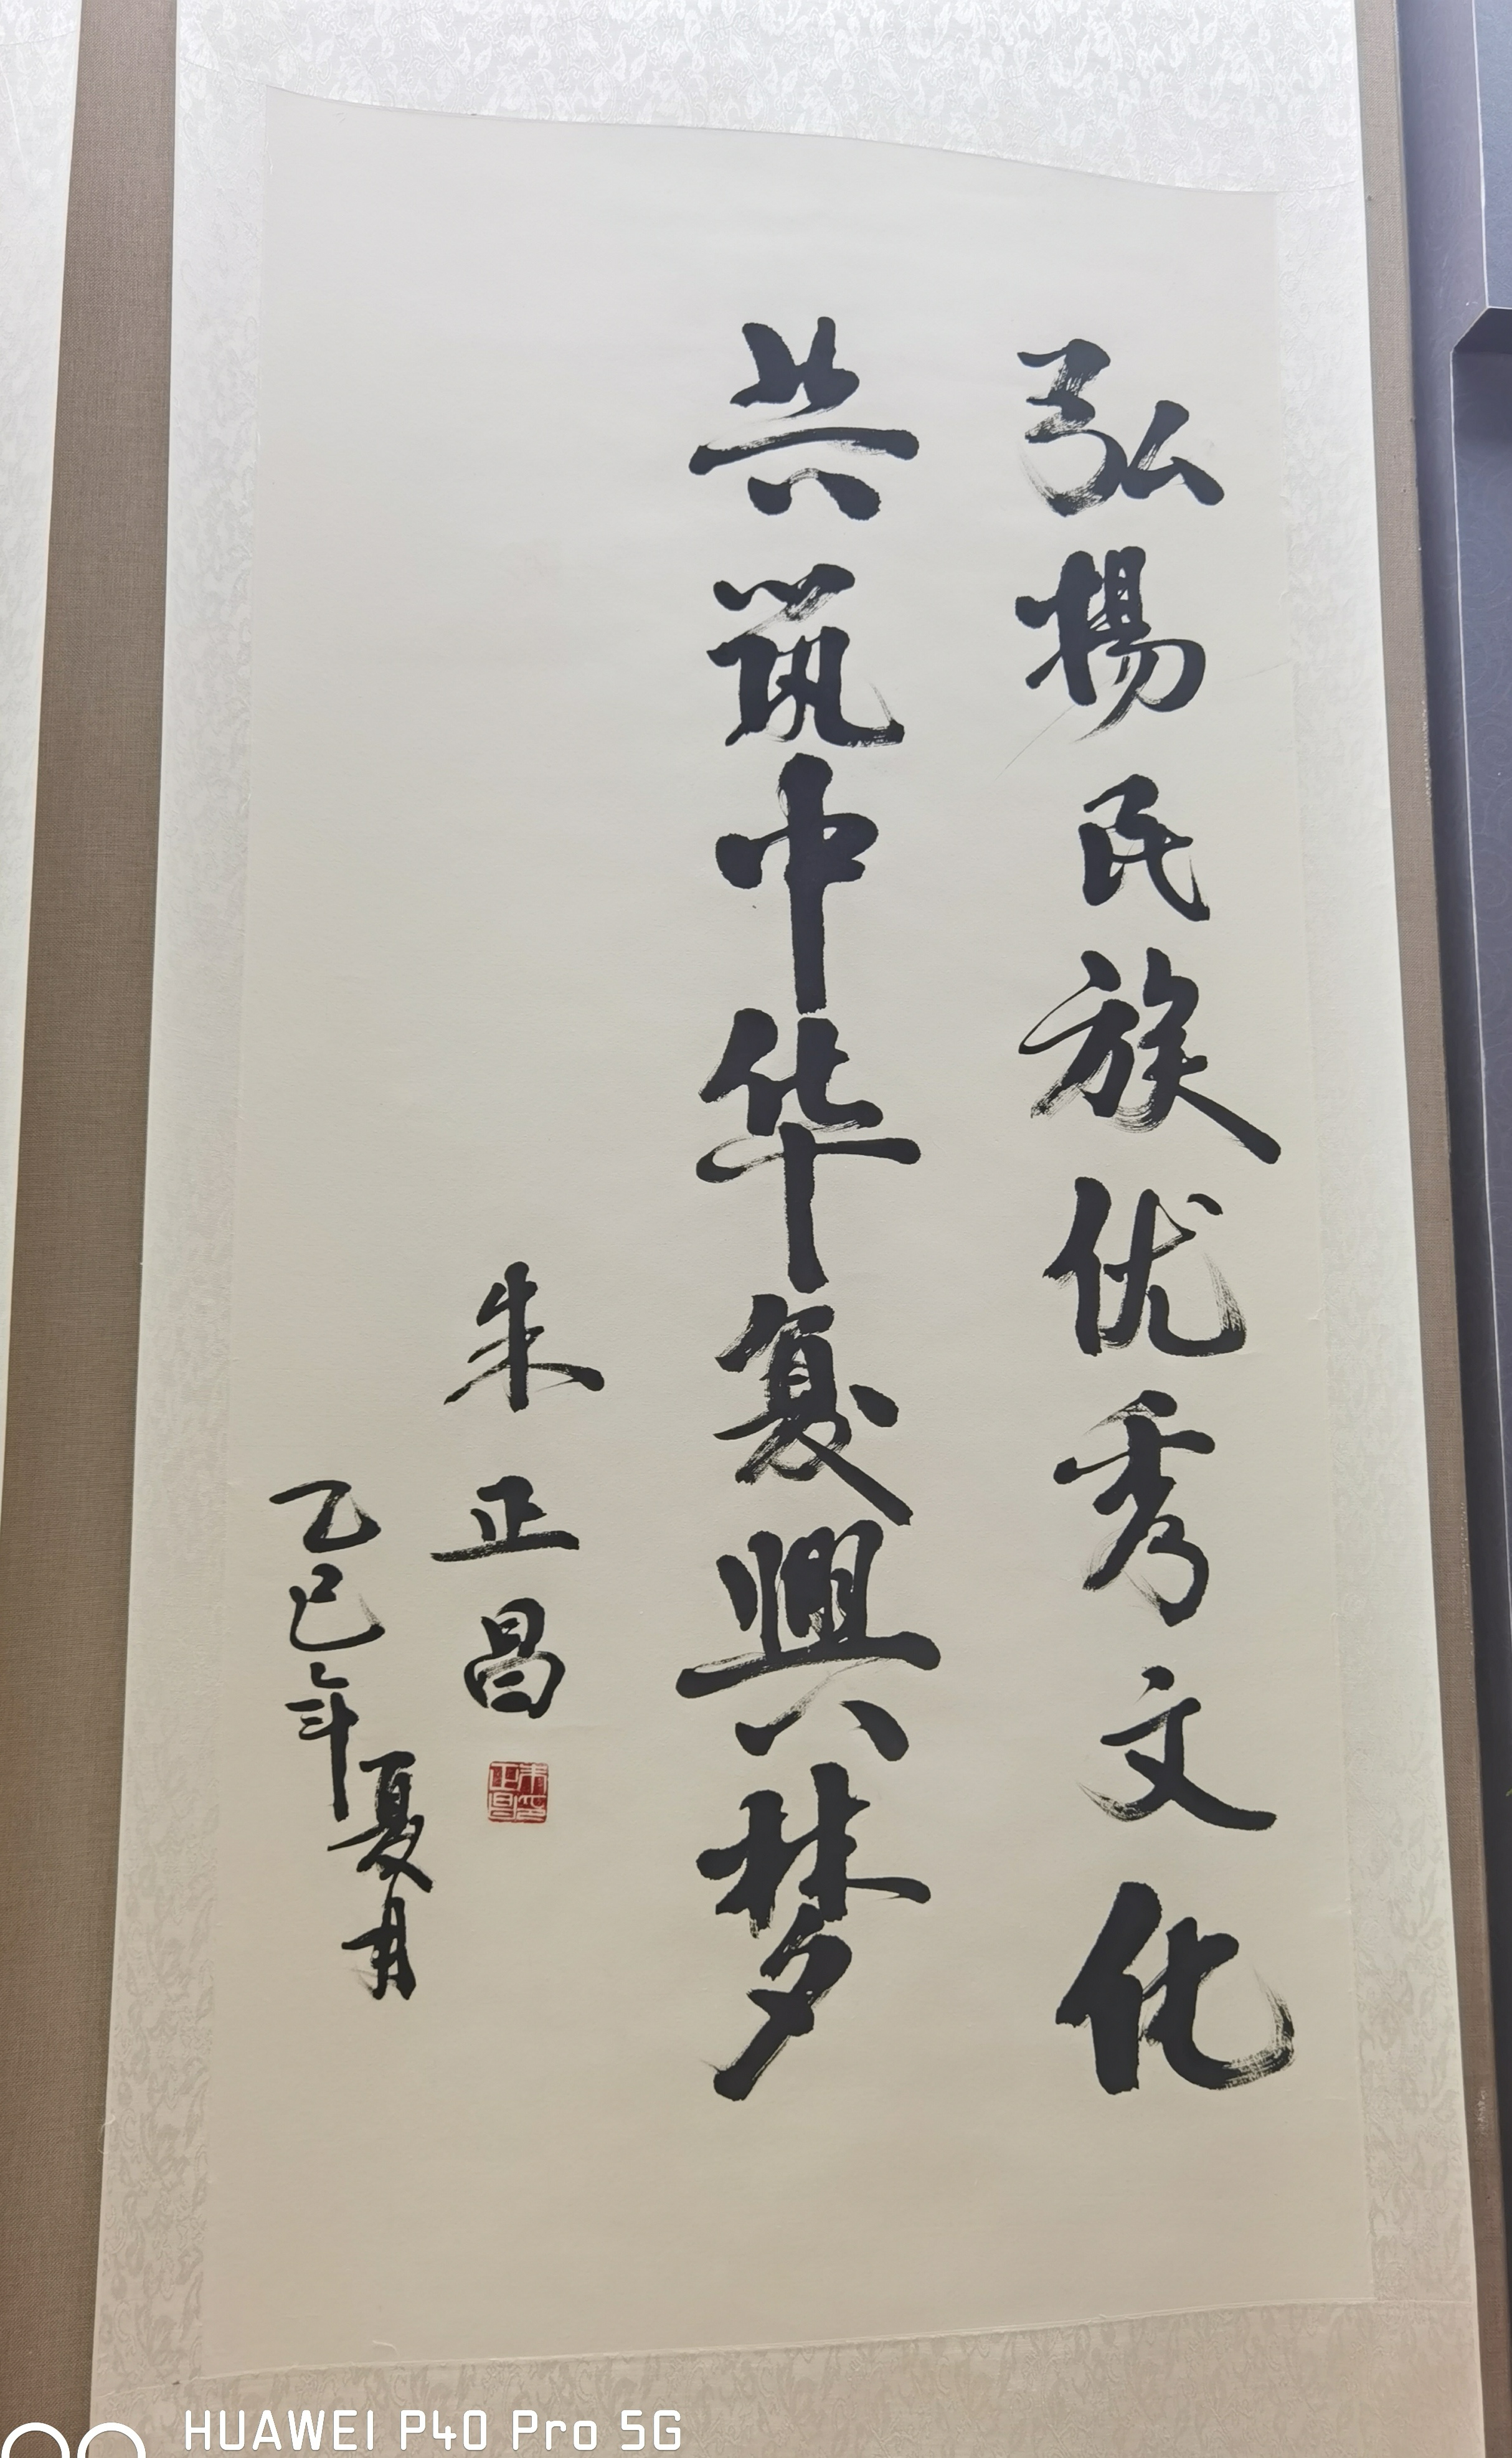 弘揚民族优秀文化
共筑中华复興梦
朱正昌
乙巳年夏月
朱正昌印
HUAWEI P40 Pro 5G